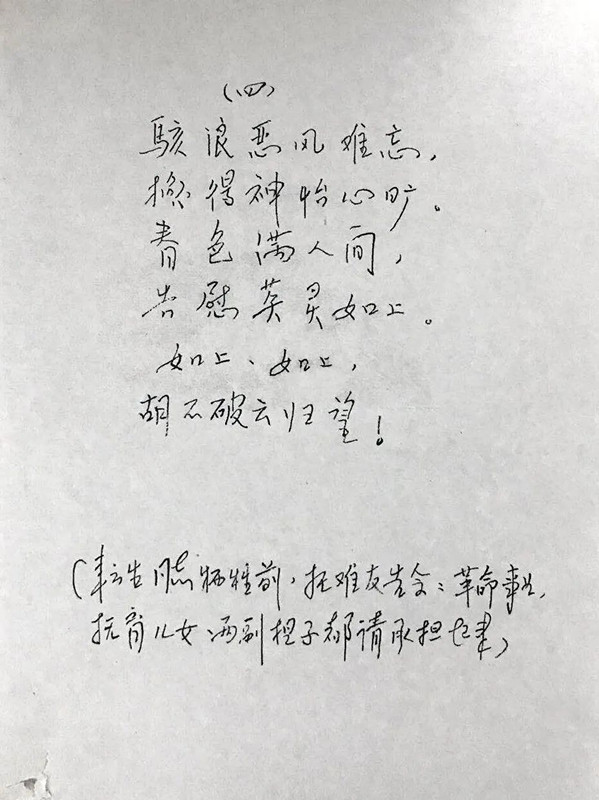 （四）
駭浪恶风难忘，
换得神怡心旷。
春色满人间，
告慰英灵如上。
如上、如上，
胡不破云归望！
（车云生同志牺牲前，托难友告余：革命事业，
抚育儿女，两副担子都请承担起来）